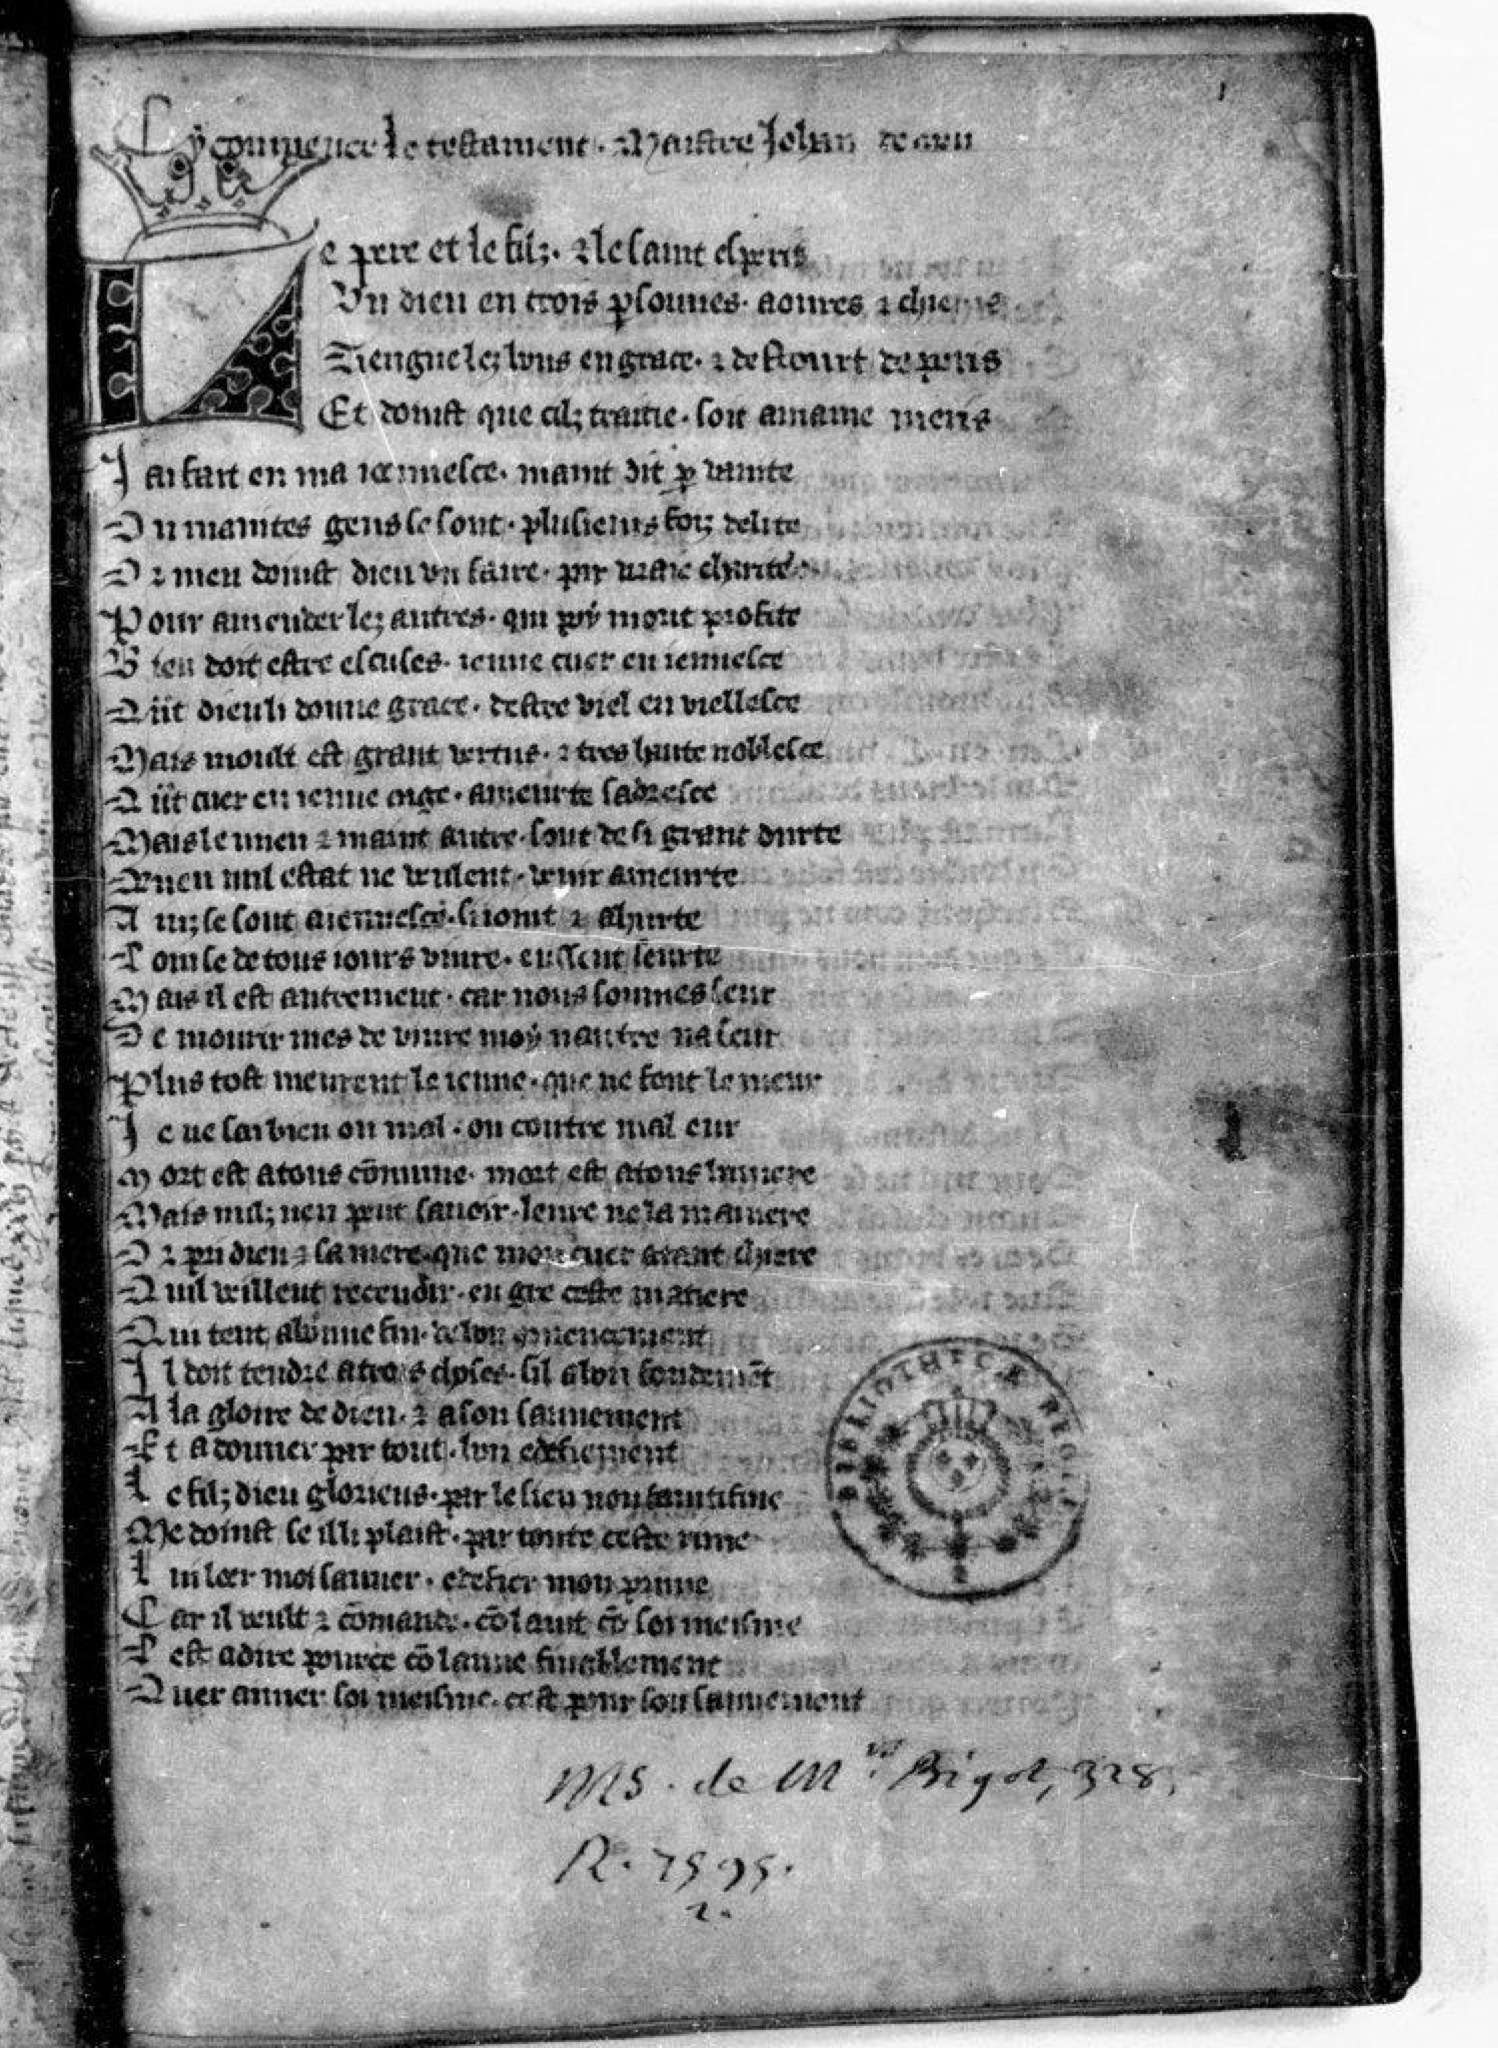 Cy commence le testament · Maistre Jehan de meu
Le pere et le filz · ⁊ le saint esperis
Un dieu en trois psonnes · aoures ⁊ cheris
Tiengne lez bons en grace · ⁊ descourt de peris
Et doinst que cilz traitie · soit a mame meris
J ai fait en ma iennesce · maint dit p vanite
Ou maintes gens se sont · plusieurs foiz delite
Or men doinst dieu un faire · par vraie charite
Pour amender lez autres · qui poy mont profite
Bien doit estre escuses · ienne cuer en iennesce
Quant dieu li donne grace · destre viel en viellesce
Mais moult est grant vertus · ⁊ tres haute noblesce
Quant cuer en ienne aige · a meurte sadresce
Mais le mien ⁊ maint autre · sont de si grant durte
Quen nul estat ne veulent · venir a meurte
A niz se sont a iennesce · si ioint ⁊ ahurte
Comse de tous iours viure · eussent seurte
Mais il est autrement · car nous sommes seur
De mourir mes de viure moy nautre na seur
Plus tost meurent le ienne · que ne font le meur
Je ne sai bien ou mal · ou contre mal eur
Mort est a tous cōmune · mort est a tous lumiere
Mais nulz nen peut sauoir · leure ne la maniere
Or pri dieu ⁊ sa mere · que mon cuer a tant chiere
Quil veillent receuoir · en gre ceste matiere
Qui tent a bonne fin · de bon gmencement
Il doit tendre a trois choses · sil a bon fondemēt
A la gloire de dieu · ⁊ a son sauuement
Et a donner par tout · bon edefiement
Le filz dieu glorieus · par le sien non
Me doinst se illi plaist · par toute ceste rime
Lui loer moi sauuer · edefier mon prime
Car il veult ⁊ cōmande · cō laint cō soi meisme
C est a dire pource cō lainne finablement
Quer amer soi meisme · cest pour son sauuement
BIBLIOTHECÆ REGIÆ
MS. de Mʳ Bigot, 328,
R. 7595.
2.